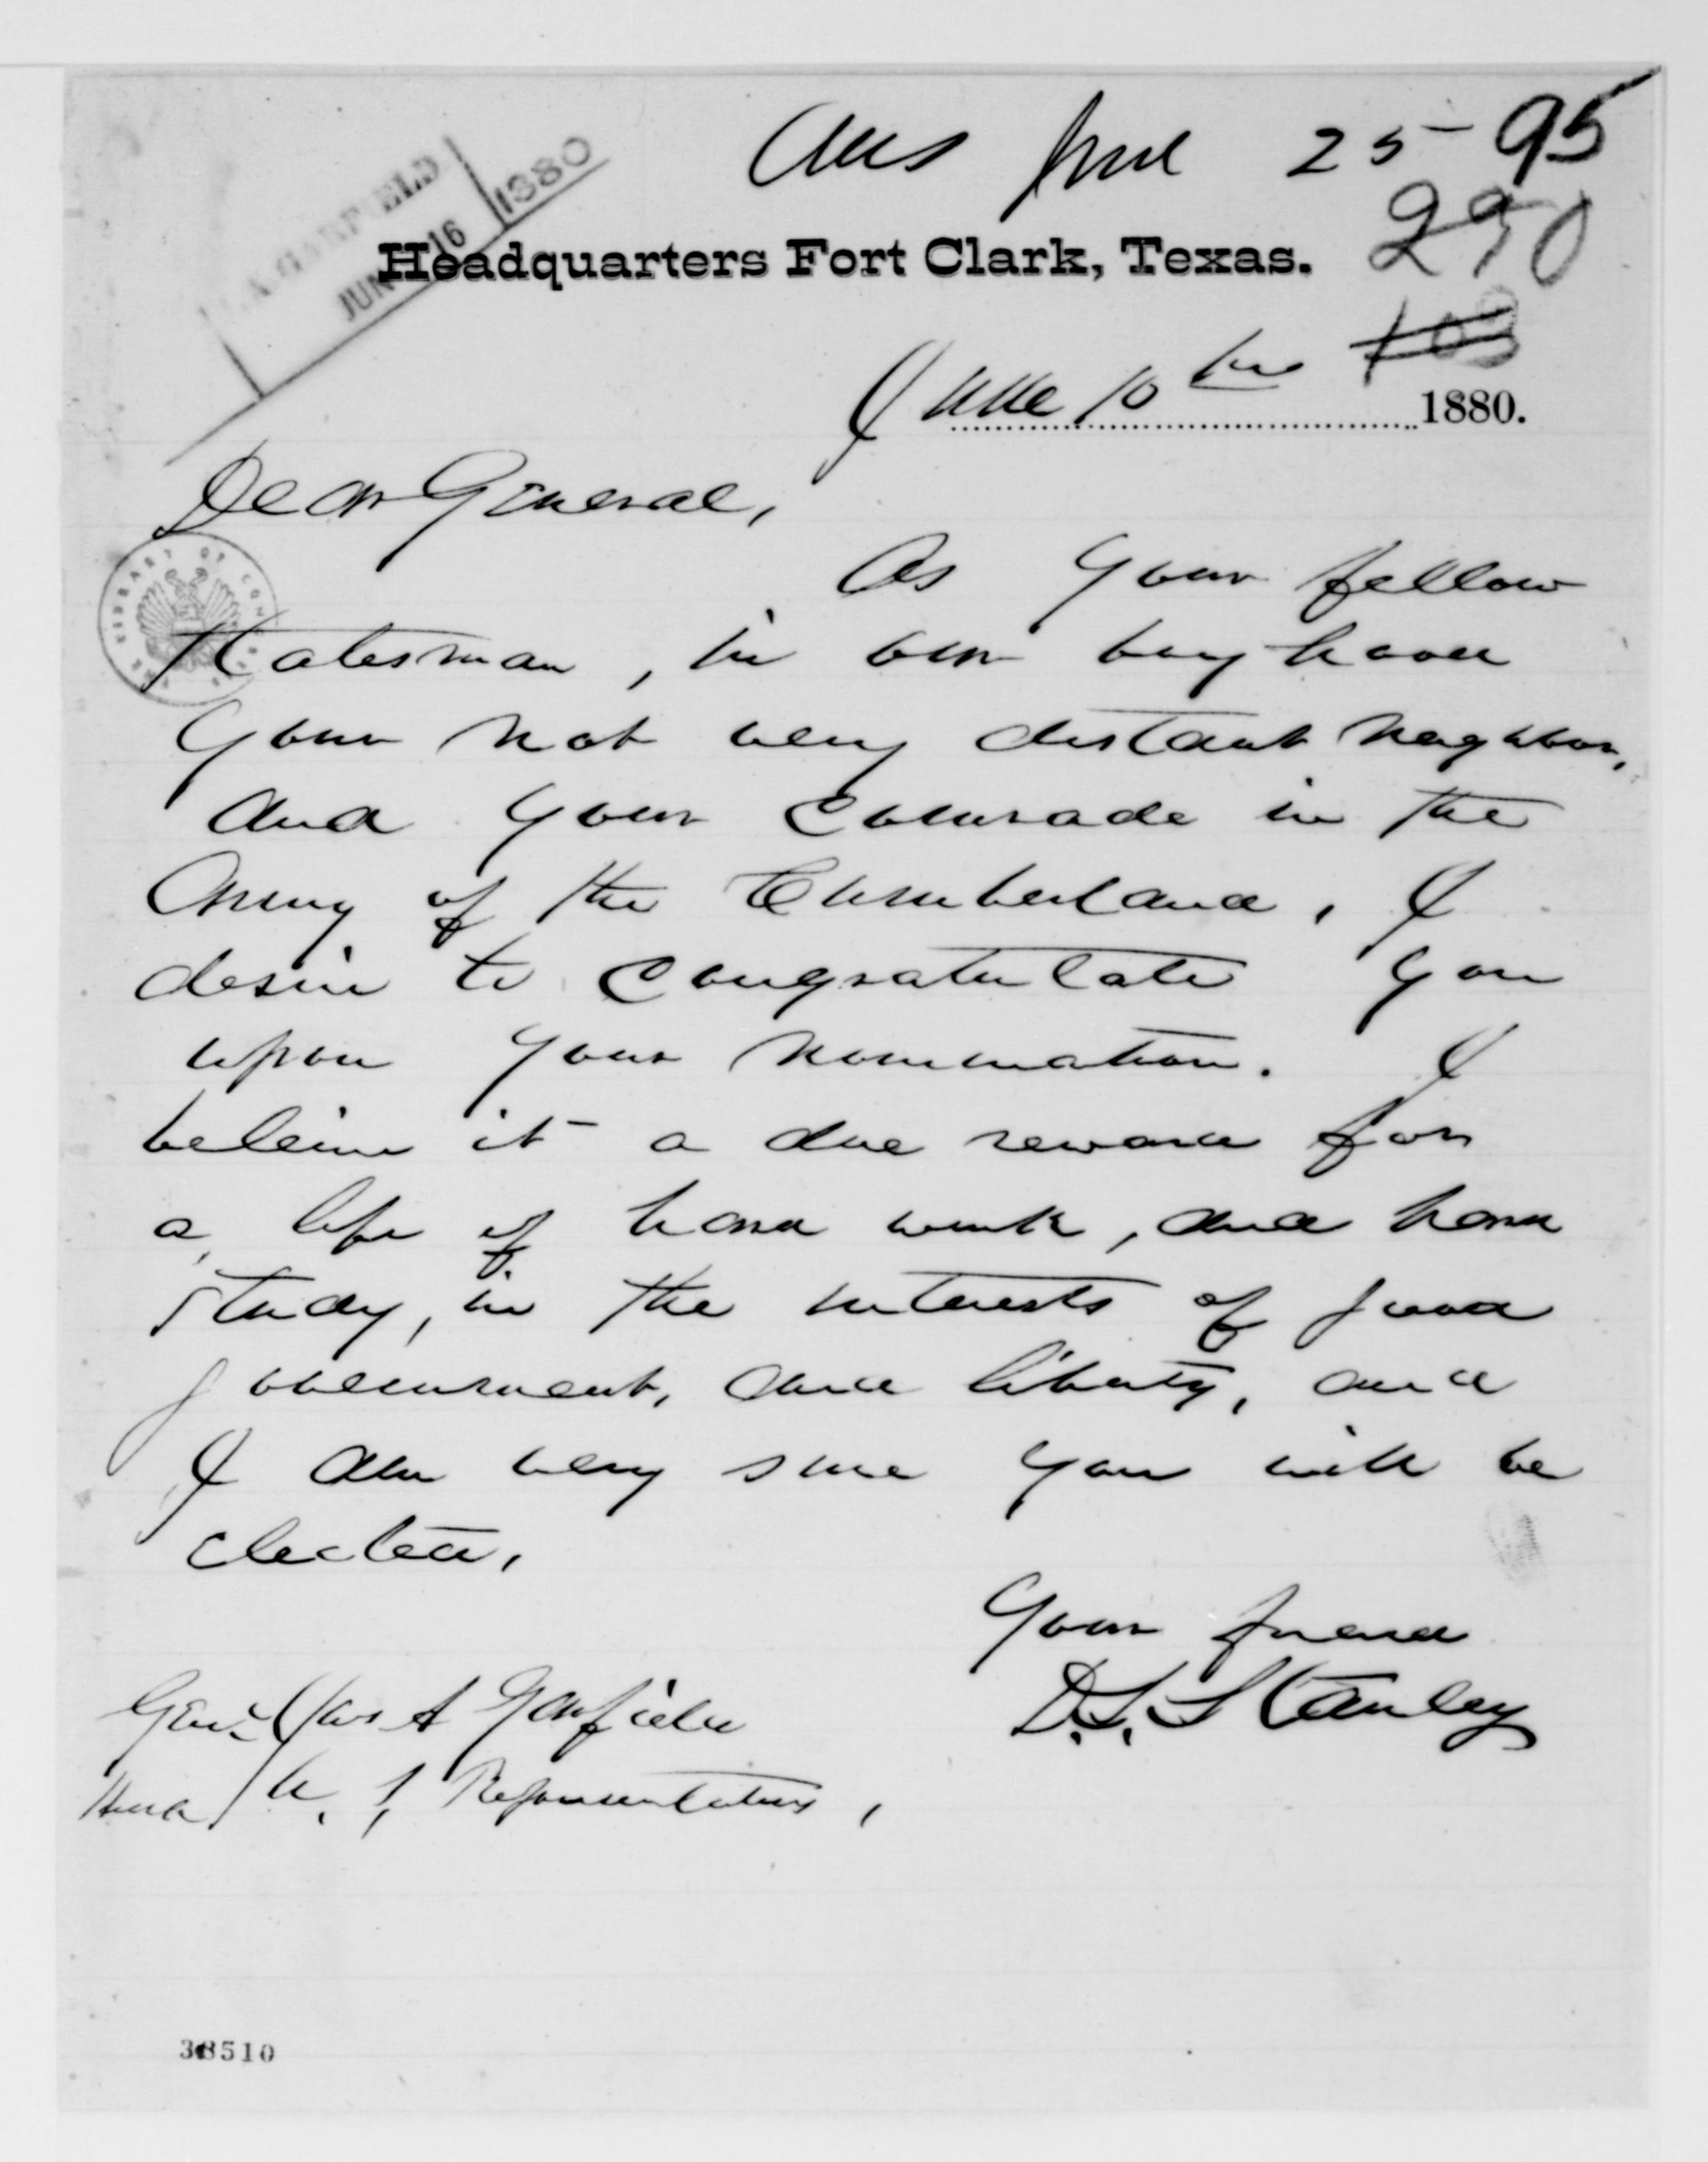 Ans June 25 - 95
290
J. A. GARFIELD
JUN 16 1880
Headquarters Fort Clark, Texas.
103
June 10th 1880.
Dear General,
As your fellow
statesman, in our boyhood
your not very distant neighbor,
and your comrade in the
Army of the Cumberland, I
desire to congratulate you
upon your nomination. I
beleive it a due reward for
a life of hard work, and hard
study, in the interests of good
government, and liberty, and
I am very sure you will be
elected.
Your friend
D.S. Stanley
Genl Jas A Garfield
U. S. Representatives,
THE LIBRARY OF CONGRESS
38510